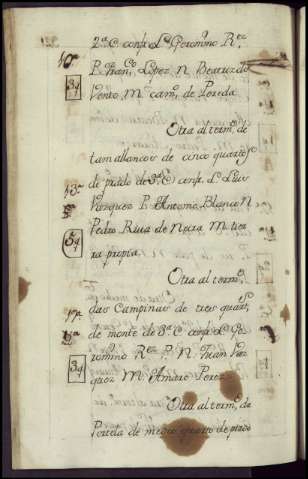 2ª C. confª L. Geronimo Rez
P. Franco Lopez N. Beatriz do
Vento M. camº de Pereda
Otra al termº de
tamallancos de cinco quartos
de prado de 3ª C. confª L. Luis
Vazquez P. Antonio Blanco N.
Pedro Rua de Negra M. tier
ra propia.
Otra al termº
das Campinas de tres quartos
de monte de 3ª C. confª L. Ge
ronimo Rez P. N. Juan Vaz
quez M. Amaro Perez
Otra al termº de
Portela de medio quarto de prado
10ª
3q
13ª
5q
17ª
3q